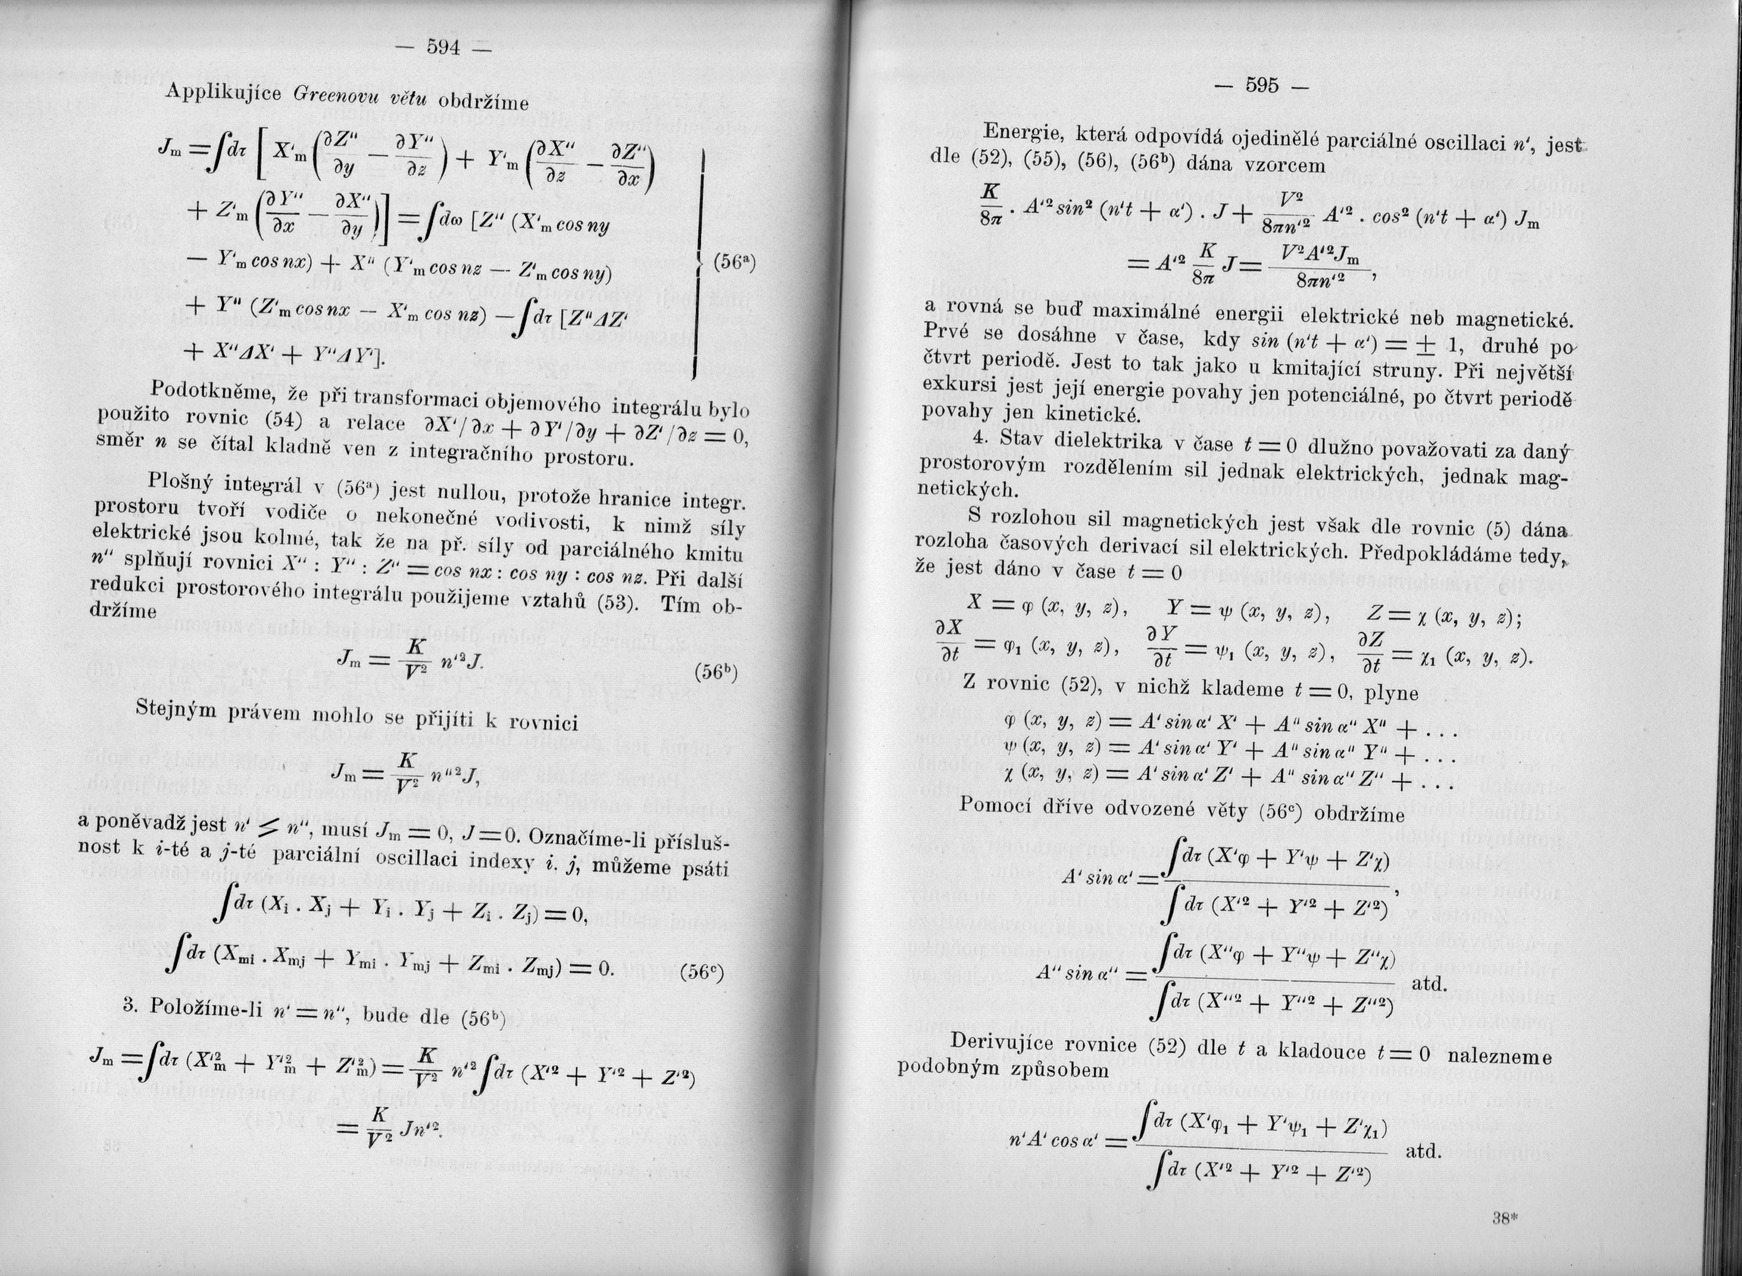 — 594 —
Applikujíce Greenovu větu obdržíme
Jₘ = ∫dτ [ X'ₘ (∂Z''/∂y − ∂Y''/∂z) + Y'ₘ (∂X''/∂z − ∂Z''/∂x)
+ Z'ₘ (∂Y''/∂x − ∂X''/∂y)] = ∫dω [Z'' (X'ₘ cos ny
− Y'ₘ cos nx) + X'' (Y'ₘ cos nz — Z'ₘ cos ny) (56ᵃ)
+ Y'' (Z'ₘ cos nx − X'ₘ cos nz) − ∫dτ [Z''ΔZ'
+ X''ΔX' + Y''ΔY'].
Podotkněme, že při transformaci objemového integrálu bylo
použito rovnic (54) a relace ∂X'/∂x + ∂Y'/∂y + ∂Z'/∂z = 0,
směr n se čítal kladně ven z integračního prostoru.
Plošný integrál v (56ᵃ) jest nullou, protože hranice integr.
prostoru tvoří vodiče o nekonečné vodivosti, k nimž síly
elektrické jsou kolmé, tak že na př. síly od parciálného kmitu
n'' splňují rovnici X'' : Y'' : Z'' = cos nx : cos ny : cos nz. Při další
redukci prostorového integrálu použijeme vztahů (53). Tím ob-
držíme
Jₘ = K/V² n'²J. (56ᵇ)
Stejným právem mohlo se přijíti k rovnici
Jₘ = K/V² n''²J,
a poněvadž jest n' ≶ n'', musí Jₘ = 0, J = 0. Označíme-li přísluš-
nost k i-té a j-té parciální oscillaci indexy i. j, můžeme psáti
∫dτ (Xᵢ . Xⱼ + Yᵢ . Yⱼ + Zᵢ . Zⱼ) = 0,
∫dτ (Xₘᵢ . Xₘⱼ + Yₘᵢ . Yₘⱼ + Zₘᵢ . Zₘⱼ) = 0. (56ᶜ)
3. Položíme-li n' = n'', bude dle (56ᵇ)
Jₘ = ∫dτ (X'²ₘ + Y'²ₘ + Z'²ₘ) = K/V² n'² ∫dτ (X'² + Y'² + Z'²)
= K/V² Jn'².
— 595 —
Energie, která odpovídá ojedinělé parciálné oscillaci n', jest
dle (52), (55), (56), (56ᵇ) dána vzorcem
K/8π . A'² sin² (n't + α') . J + V²/8πn'² A'² . cos² (n't + α') Jₘ
= A'² K/8π J = V²A'²Jₘ/8πn'²,
a rovná se buď maximálné energii elektrické neb magnetické.
Prvé se dosáhne v čase, kdy sin (n't + α') = ± 1, druhé po
čtvrt periodě. Jest to tak jako u kmitající struny. Při největší
exkursi jest její energie povahy jen potenciálné, po čtvrt periodě
povahy jen kinetické.
4. Stav dielektrika v čase t = 0 dlužno považovati za daný
prostorovým rozdělením sil jednak elektrických, jednak mag-
netických.
S rozlohou sil magnetických jest však dle rovnic (5) dána
rozloha časových derivací sil elektrických. Předpokládáme tedy,
že jest dáno v čase t = 0
X = φ (x, y, z), Y = ψ (x, y, z), Z = χ (x, y, z);
∂X/∂t = φ₁ (x, y, z), ∂Y/∂t = ψ₁ (x, y, z), ∂Z/∂t = χ₁ (x, y, z).
Z rovnic (52), v nichž klademe t = 0, plyne
φ (x, y, z) = A' sin α' X' + A'' sin α'' X'' + . . .
ψ (x, y, z) = A' sin α' Y' + A'' sin α'' Y'' + . . .
χ (x, y, z) = A' sin α' Z' + A'' sin α'' Z'' + . . .
Pomocí dříve odvozené věty (56ᶜ) obdržíme
A' sin α' = ∫dτ (X'φ + Y'ψ + Z'χ) / ∫dτ (X'² + Y'² + Z'²),
A'' sin α'' = ∫dτ (X''φ + Y''ψ + Z''χ) / ∫dτ (X''² + Y''² + Z''²) atd.
Derivujíce rovnice (52) dle t a kladouce t = 0 nalezneme
podobným způsobem
n'A' cos α' = ∫dτ (X'φ₁ + Y'ψ₁ + Z'χ₁) / ∫dτ (X'² + Y'² + Z'²) atd.
38*